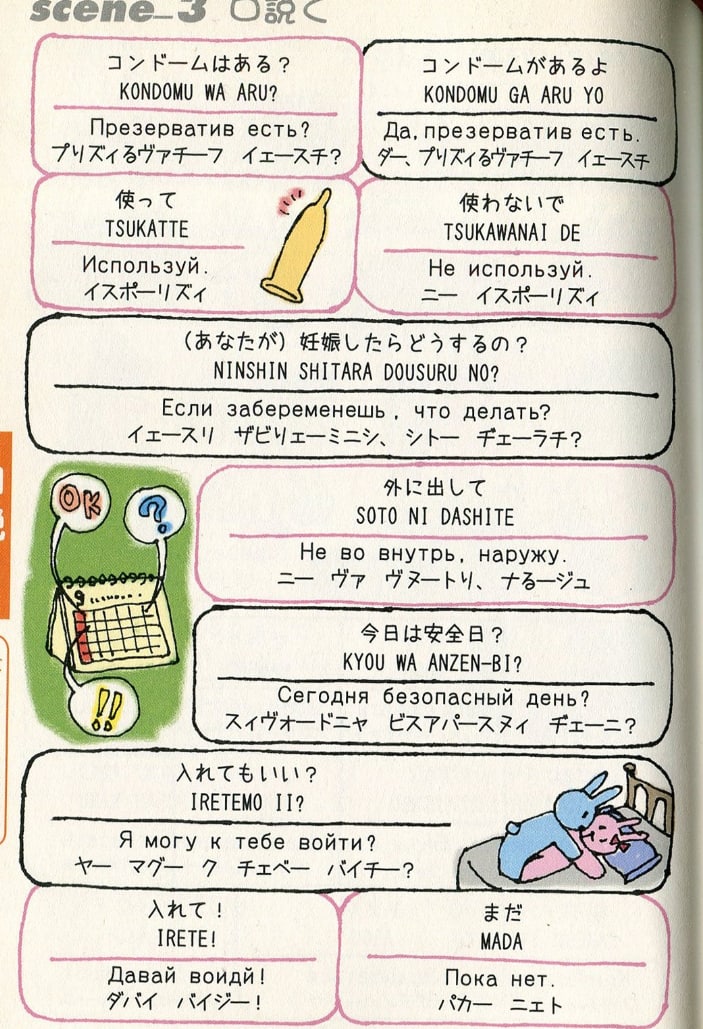 scene_3 口説く
コンドームはある？
KONDOMU WA ARU?
Презерватив есть?
プリズィるヴァチーフ　イェースチ？
コンドームがあるよ
KONDOMU GA ARU YO
Да, презерватив есть.
ダー、プリズィるヴァチーフ　イェースチ
使って
TSUKATTE
Используй.
イスポーリズィ
使わないで
TSUKAWANAI DE
Не используй.
ニー　イスポーリズィ
（あなたが）妊娠したらどうするの？
NINSHIN SHITARA DOUSURU NO?
Если забеременешь, что делать?
イェースリ　ザビりェーミニシ、シトー　ヂェーラチ？
OK
?
9
!!
外に出して
SOTO NI DASHITE
Не во внутрь, наружу.
ニー　ヴァ　ヴヌートり、ナるージュ
今日は安全日？
KYOU WA ANZEN-BI?
Сегодня безопасный день?
スィヴォードニャ　ビスアパースヌィ　ヂェーニ？
入れてもいい？
IRETEMO II?
Я могу к тебе войти?
ヤー　マグー　ク　チェベー　バイチー？
入れて！
IRETE!
Давай воидй!
ダバイ　バイジー！
まだ
MADA
Пока нет.
パカー　ニェト